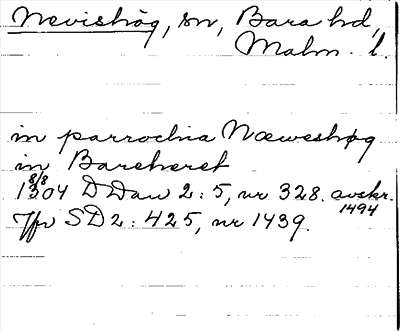 Nevishög, sn, Bara hd,
Malm. l.
in parrochia Næweshøg
in Bareheret
8/8
1304 DDan 2:5, nr 328. avskr.
1494
Jfr SD 2:425, nr 1439.